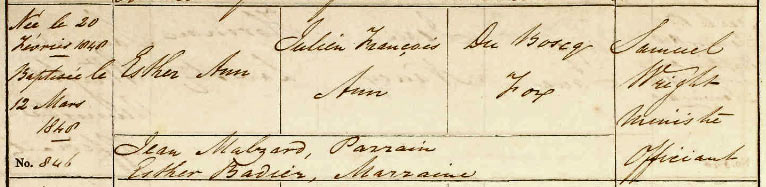 Née le 20
Février 1848
Baptisée le
12 Mars
1848
No. 846
Esther Ann
Julien François
Ann
Du Boscq
Fox
Samuel
Wright
Ministre
Officiant
Jean Malzard, Parrain
Esther Badier, Marraine